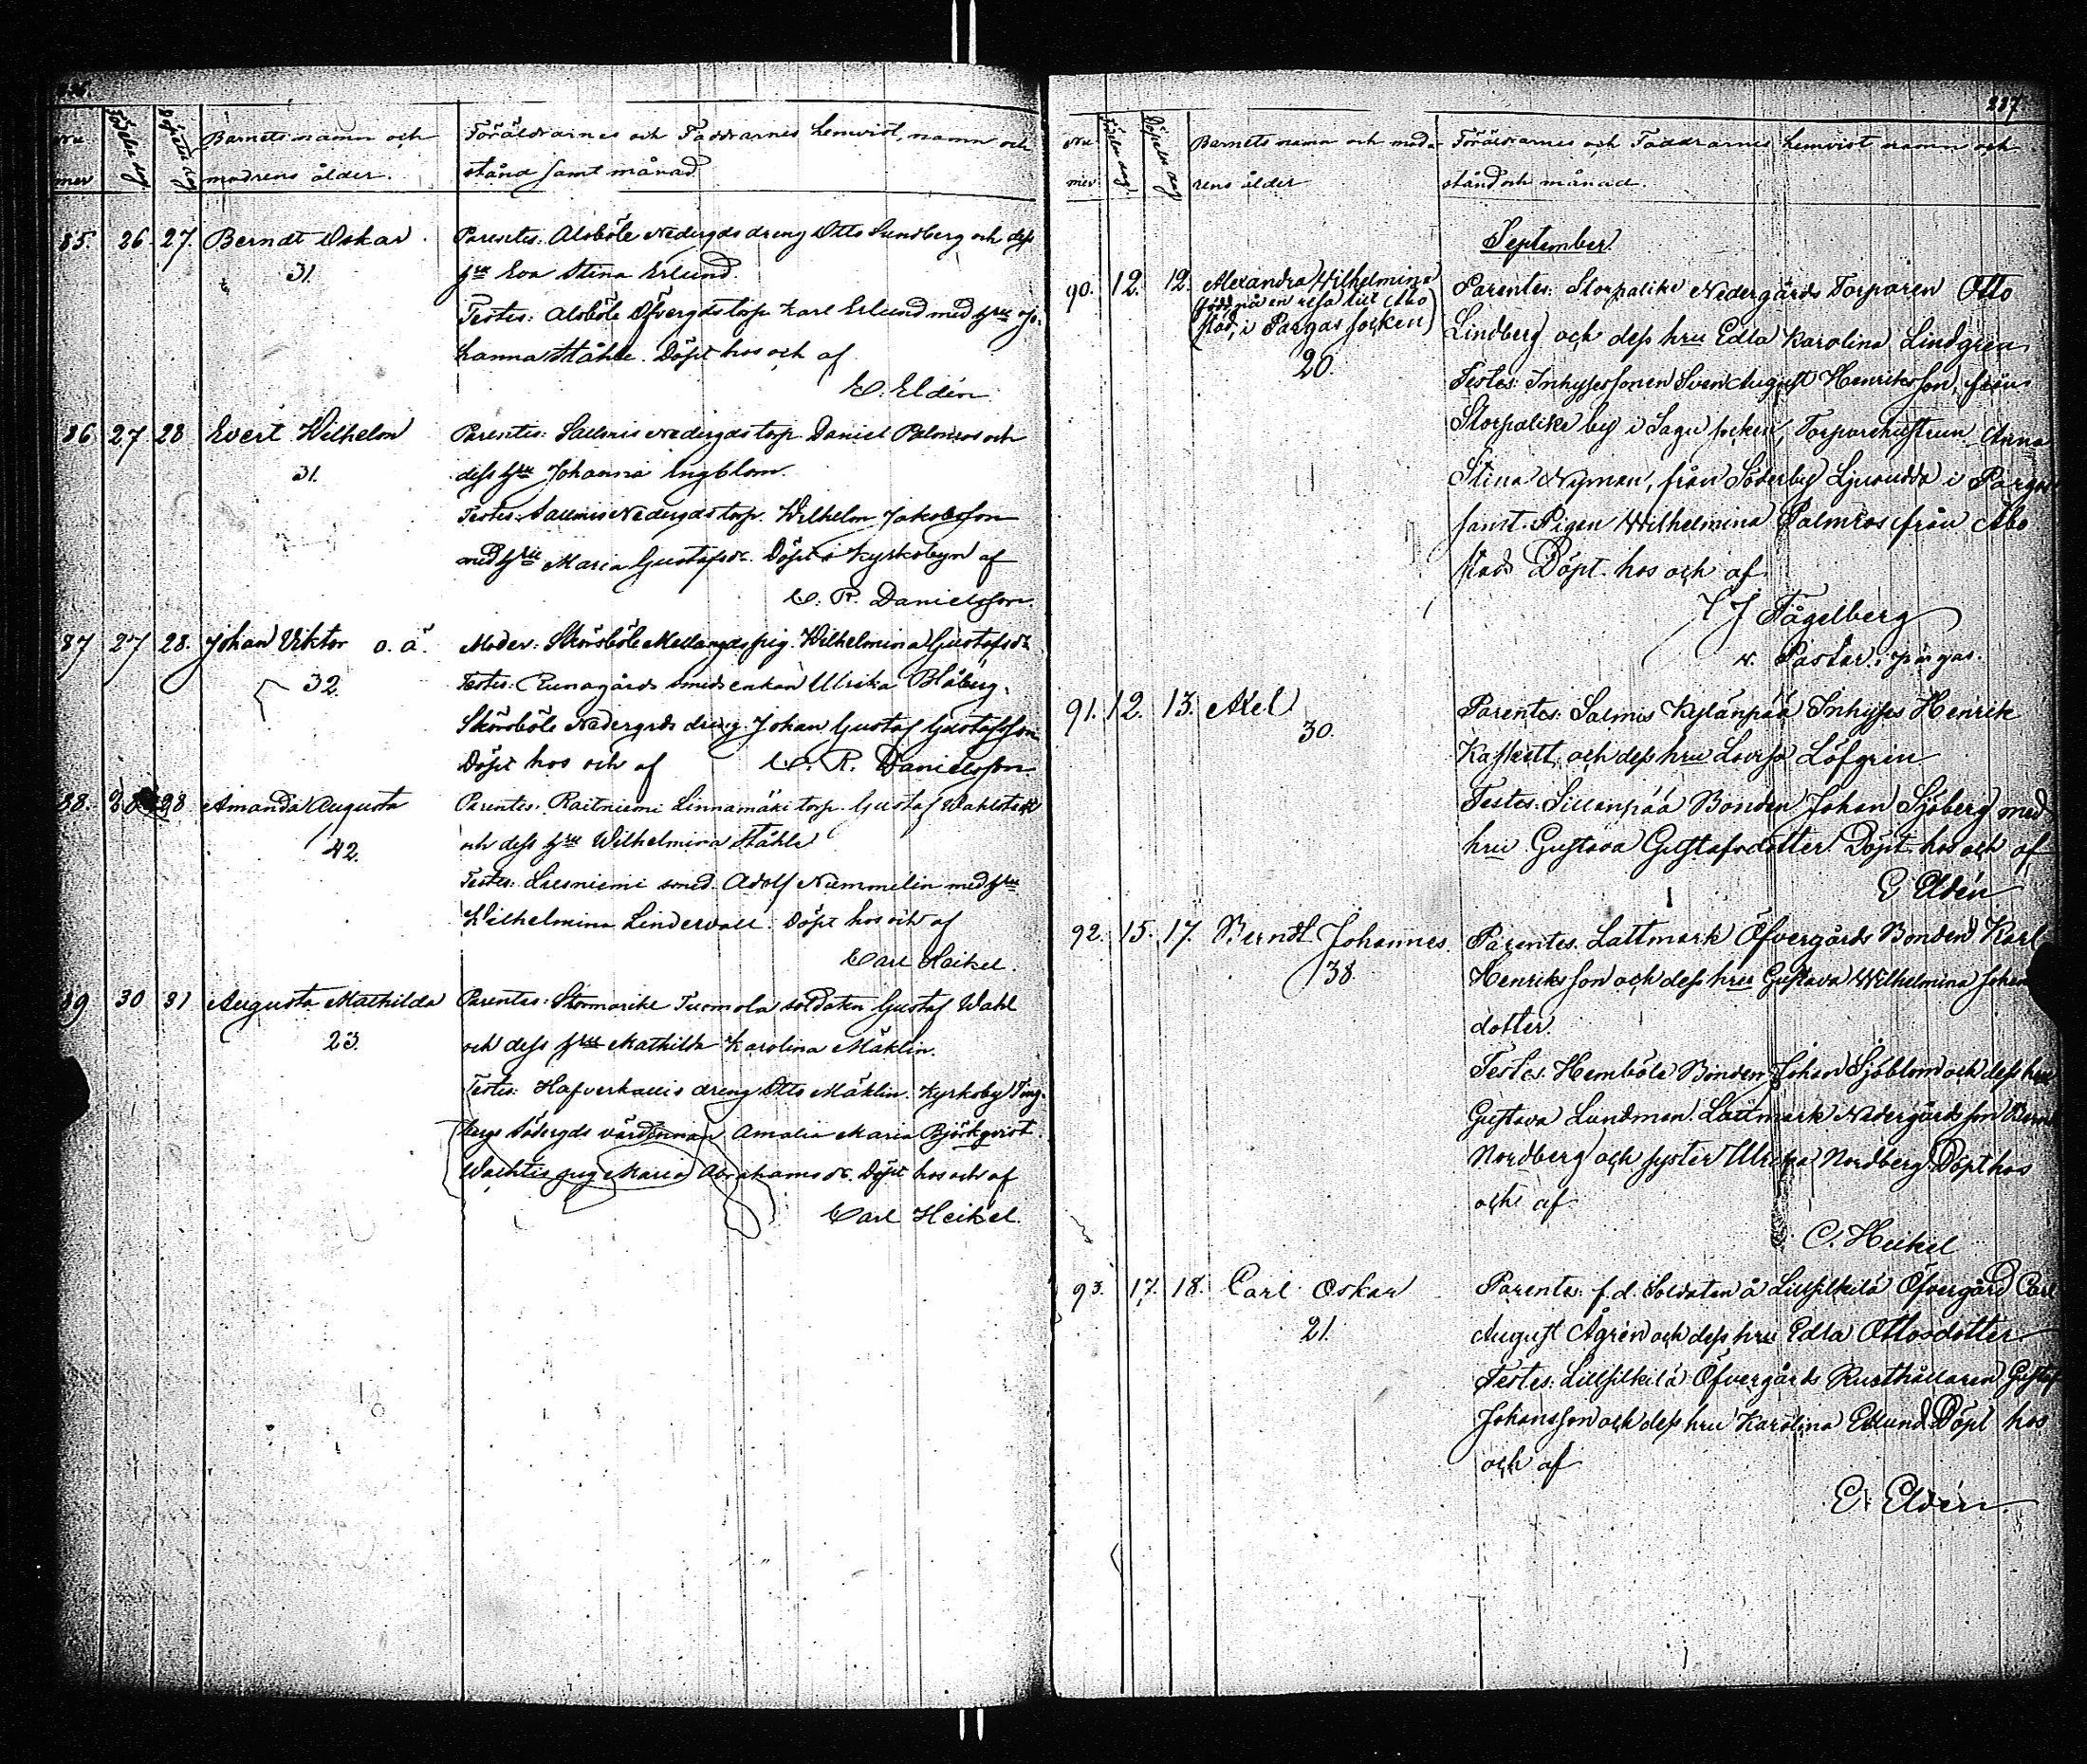 Nu
mer
Födelse dag
Döpelse dag
Barnets namn och
modrens ålder.
Föräldrarnes och Faddrarnes hemvist, namn och
stånd samt månad
85. 26 27. Berndt Oskar
31.
Parentes: Alsböle Nedergds dreng Otto Sundberg och dess
hru Eva Stina Erlund.
Testes: Alsböle Öfvergds torp. Karl Erlund med hru Jo-
hanna Ståhle. Döpt hos och af
E. Eldén
86 27 28 Evert Wilhelm
31.
Parentes: Salmis Nedergds torp. Daniel Palmros och
dess hru Johanna Engblom.
Testes: Salmis Nedergds torp. Wilhelm Jakobsson
med hru Maria Gustafsdr. Döpt i Kyrkobyn af
C. R. Danielsson.
87 27 28. Johan Viktor o. ä.
32.
Moder: Skörsböle Mellangds pig. Wilhelmina Gustafsdr
Testes: Runagårds smedsenkan Ulrika Blåberg.
Skörsböle Nedergrds dreng Johan Gustaf Gustafsson
Döpt hos och af C. R. Danielsson
88. 28 Amanda Augusta
42.
Parentes: Raitniemi Linnamäki torp. Gustaf Wahlstedt
och dess hru Wilhelmina Ståhle
Testes: Liesniemi smed. Adolf Nummelin med hru
Wilhelmina Lindervall. Döpt hos och af
Carl Heikel.
89 30 31 Augusta Mathilda
23.
Parentes: Stormarike Tuomola soldaten Gustaf Wahl
och dess hru Mathilda Karolina Mäklin.
Testes: Hafverkallis dreng Otto Mäklin. Kyrkoby
Södergds värdinnan Amalia Maria Björkqvist.
pig Maria Abrahamsdr. Döpt hos och af
Carl Heikel.
227
Nu
mer
Födelse dag
Döpelse dag
Barnets namn och mod-
rens ålder
Föräldrarnes och Faddrarnes hemvist namn och
stånd och månad.
September
90. 12. 12. Alexandra Wilhelmina
(född på en resa till Åbo
stad, i Pargas socken)
20.
Parentes: Storpaliko Nedergårds Torparen Otto
Lindberg och dess hru Edla Karolina Lindgren
Testes: Inhysessonen Sven August Henriksson, från
Storpaliko by i Sagu socken, Torparehustrun Anna
Stina Nyman, från Söderby Ljusudda i Pargas
samt Pigen Wilhelmina Palmros från Åbo
stad Döpt hos och af
Fågelberg
v. Pastor i Pargas.
91. 12. 13. Axel
30.
Parentes: Salmis Kylänpää Inhyses Henrik
Kaskett, och dess hru Lovisa Löfgren
Testes: Sillanpää Bonden Johan Sjöberg med
hru Gustava Gustafsdotter. Döpt hos och af
E Eldén
92. 15. 17. Berndt Johannes
38.
Parentes. Lattmark Öfvergårds Bonden Karl
Henriksson och dess hru Gustava Wilhelmina
dotter.
Testes. Hemböle Bonden Johan Sjöblom och dess hru
Gustava Lundman. Lattmark Nedergårds son
Nordberg och syster Ulrika Nordberg. Döpt hos
och af
C. Heikel
93. 17. 18. Carl Oskar
21.
Parentes: f.d. Soldaten å Lillsilkilä Öfvergård Carl
August Ågren och dess hru Edla Ottosdotter
Testes: Lillsilkilä Öfvergårds Rusthållaren Gustaf
Johansson och dess hru Karolina Edlund. Döpt hos
och af
E. Eldén.